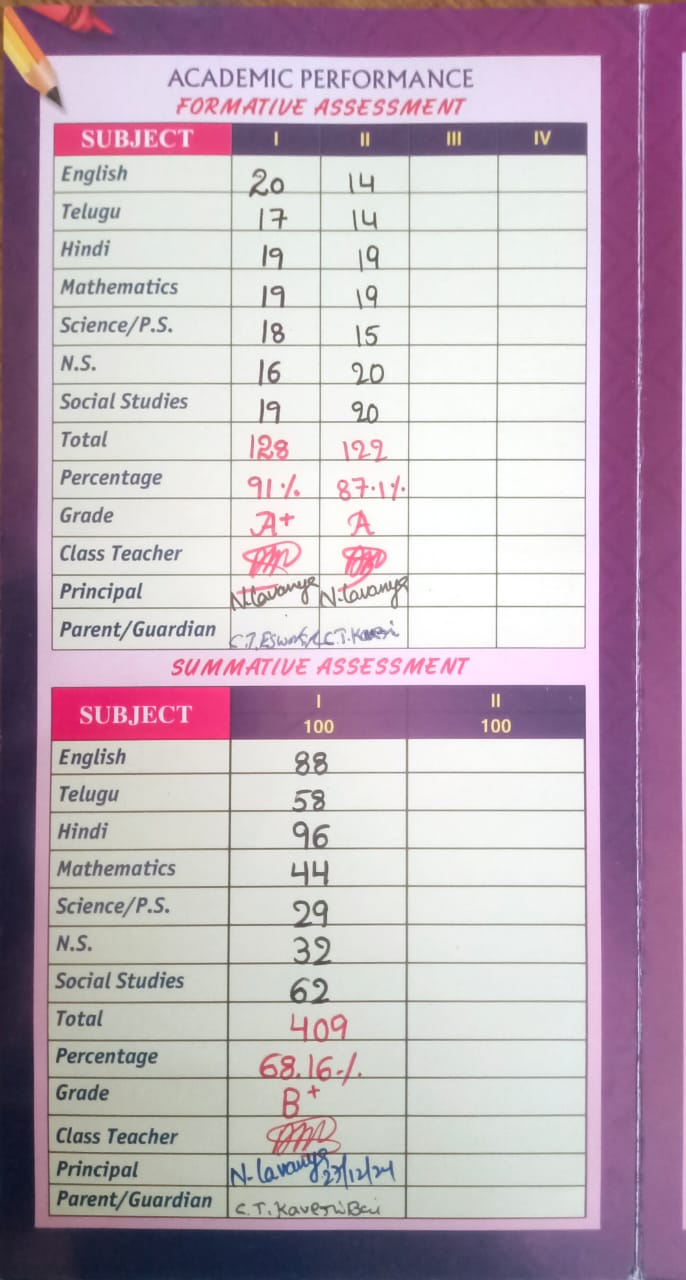 ACADEMIC PERFORMANCE
FORMATIVE ASSESSMENT
SUBJECT I II III IV
English 20 14
Telugu 17 14
Hindi 19 19
Mathematics 19 19
Science/P.S. 18 15
N.S. 16 20
Social Studies 19 20
Total 128 122
Percentage 91% 87.1%
Grade A+ A
Class Teacher
Principal N.Lavanya N.Lavanya
Parent/Guardian C.T. C.T.Kaveri
SUMMATIVE ASSESSMENT
SUBJECT I 100 II 100
English 88
Telugu 58
Hindi 96
Mathematics 44
Science/P.S. 29
N.S. 32
Social Studies 62
Total 409
Percentage 68.16%
Grade B+
Class Teacher
Principal N.Lavanya 23/12/24
Parent/Guardian C.T.Kaveri Bai